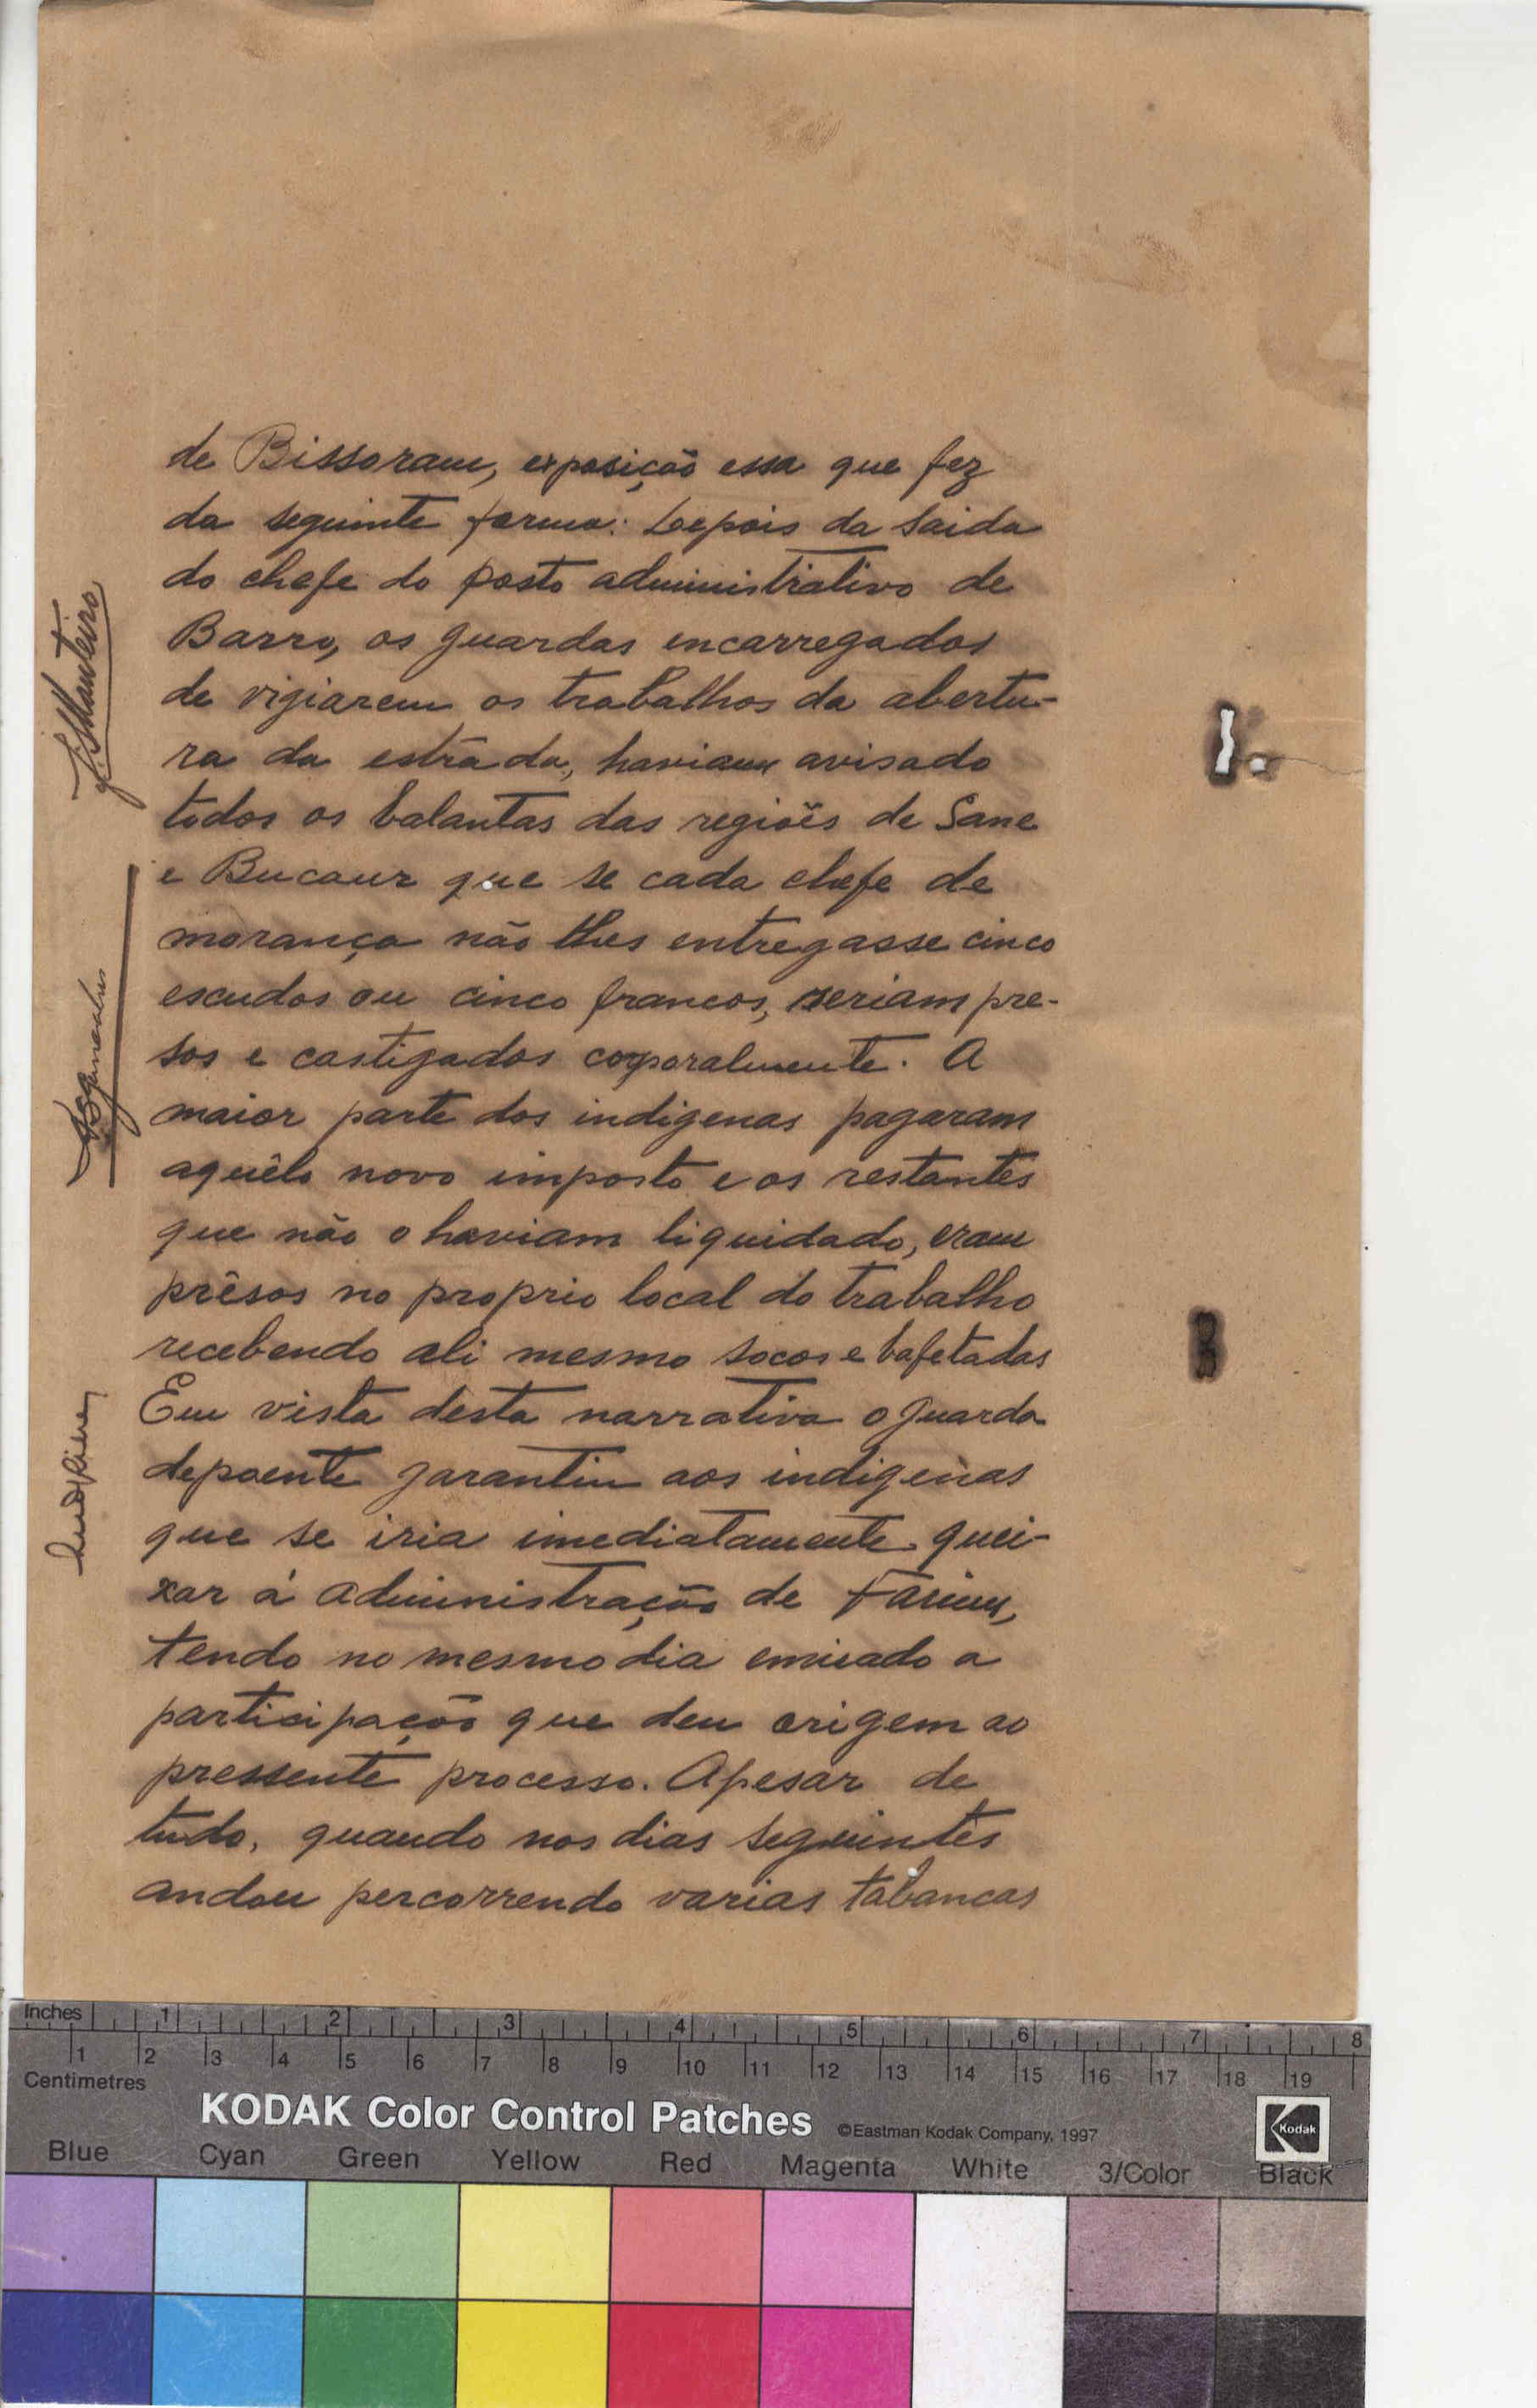 de Bissoram, exposição essa que fez
da seguinte forma: Depois da saida
do chefe do posto administrativo de
Barro, os guardas encarregados
de vigiarem os trabalhos da abertu-
ra da estráda, haviam avisado
todos os balantas das regiões de Sane
e Bucaur que se cada chefe de
morança não lhes entregasse cinco
escudos ou cinco francos, seriam pre-
sos e castigados corporalmente. A
maior parte dos indigenas pagaram
aquêle novo imposto e os restantes
que não o haviam liquidado, eram
prêsos no proprio local do trabalho
recebendo ali mesmo socos e bafetadas
Em vista desta narrativa o guarda
depoente garantiu aos indigenas
que se iria imediatamente quei-
xar á administração de Farim,
tendo no mesmo dia enviado a
participação que deu origem ao
pressente processo. Apesar de
tudo, quando nos dias seguintes
andou percorrendo varias tabancas
J. S. Monteiro
Inches 1 2 3 4 5 6 7 8
1 2 3 4 5 6 7 8 9 10 11 12 13 14 15 16 17 18 19
Centimetres
KODAK Color Control Patches ©Eastman Kodak Company, 1997 Kodak
Blue Cyan Green Yellow Red Magenta White 3/Color Black